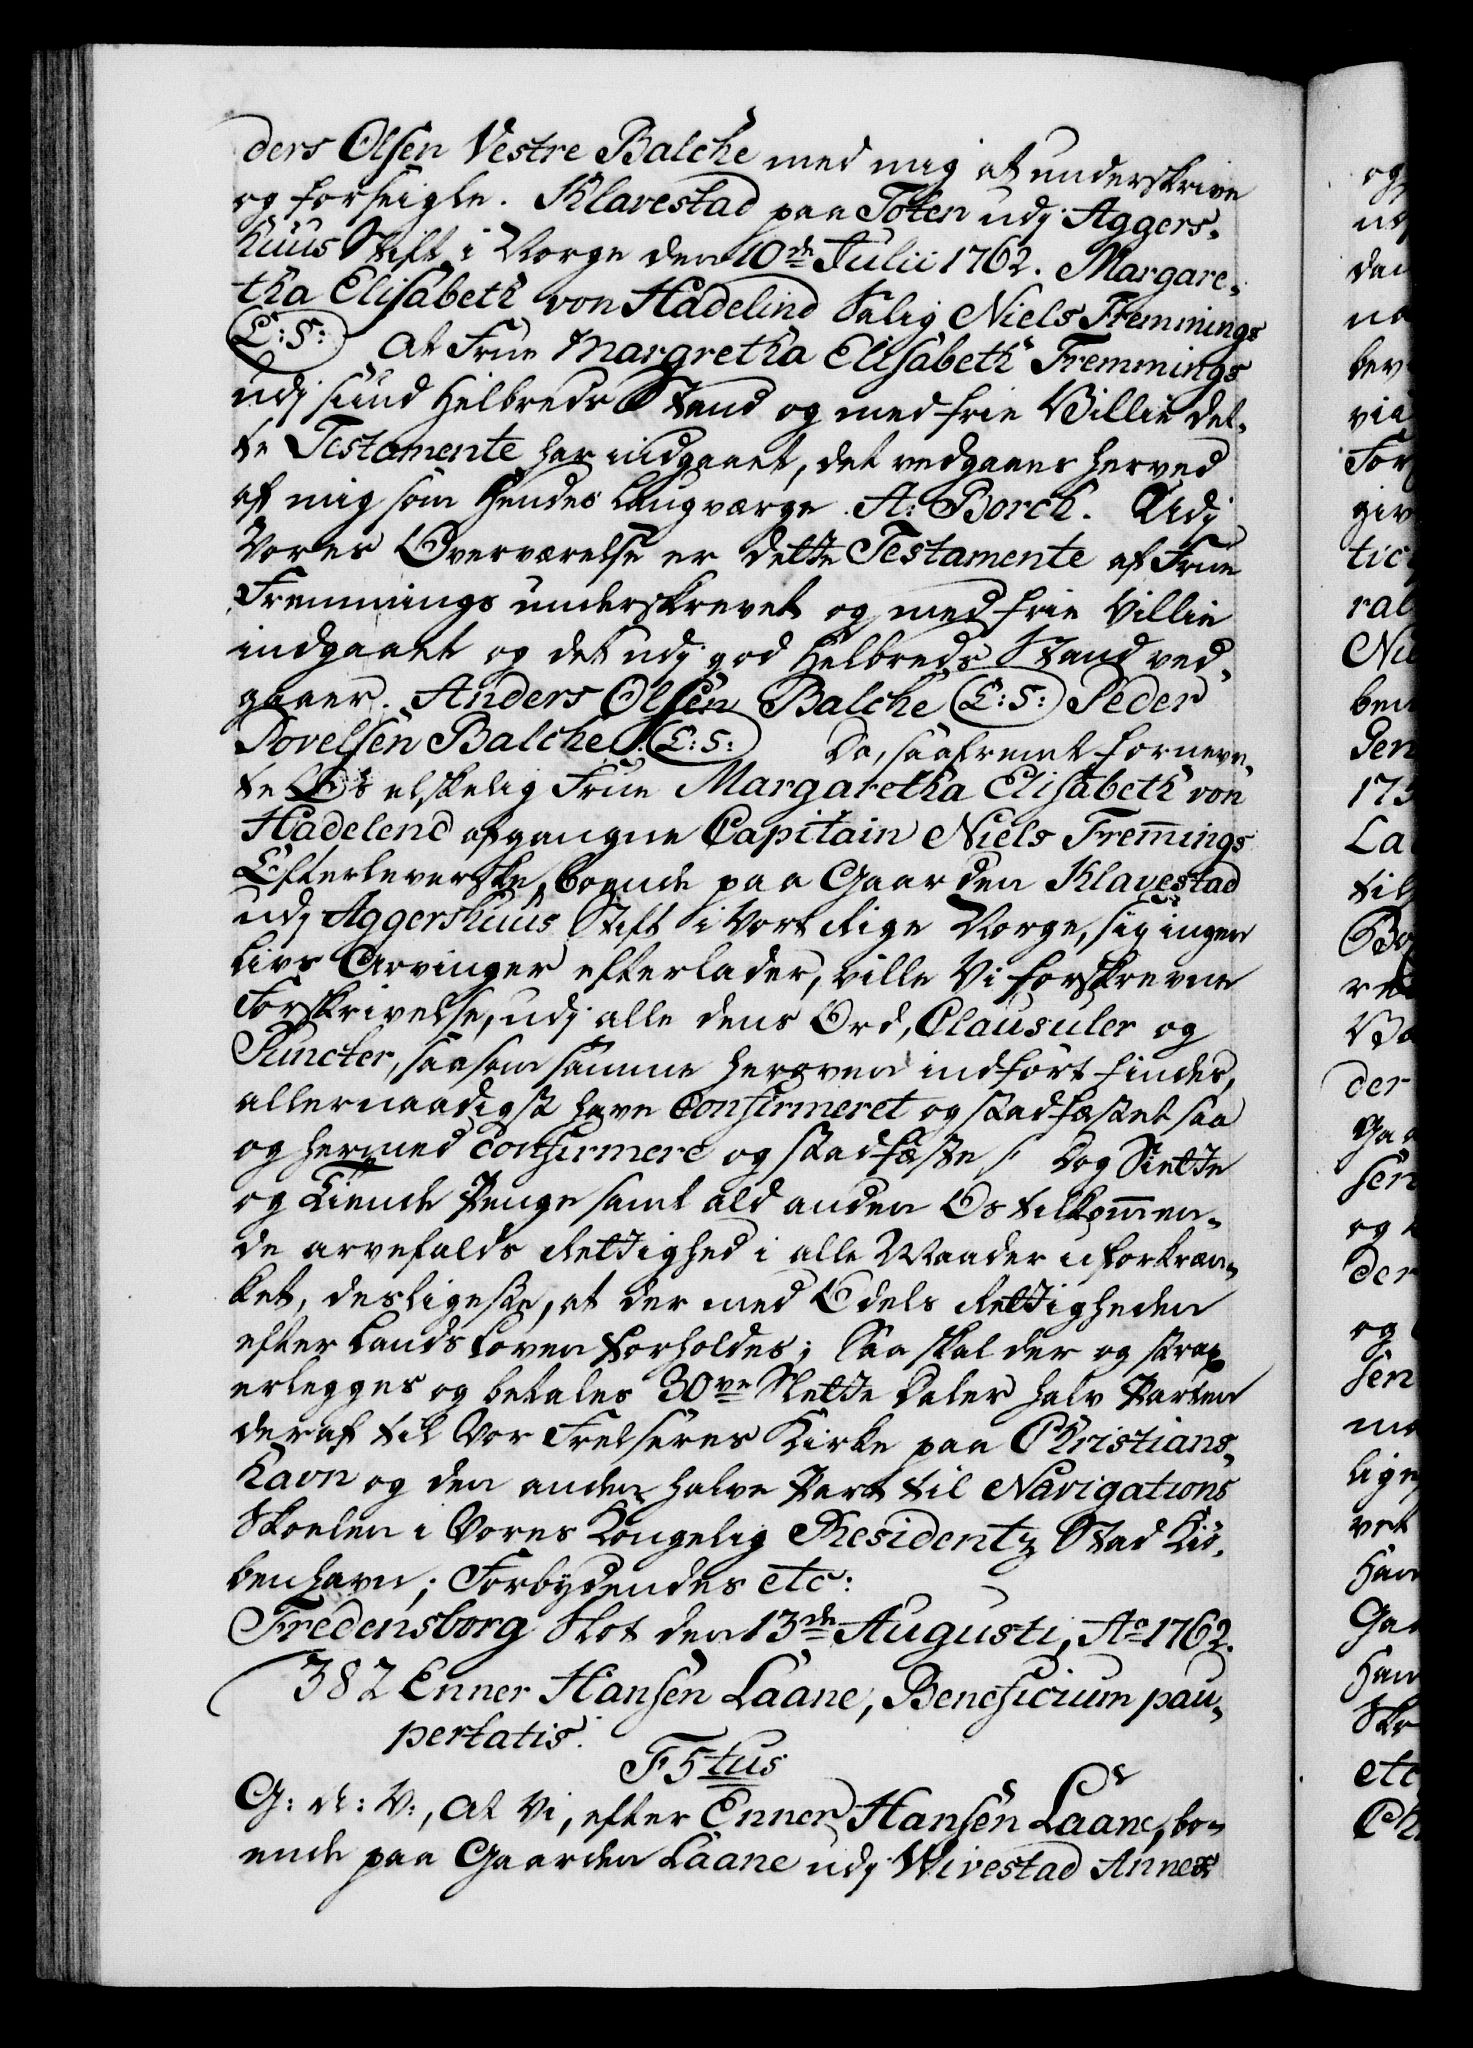 ders Olsen Vestre Balche med mig at underskrive
og forseigle. Klavestad paa Toten udj Aggers-
huus Stift i Norge den 10de Julii 1762. Margare-
tha Elisabeth von Hadelind Salig Niels Fremmings
L:S: At Frue Margretha Elisabeth Fremmings
udj sund Helbreds Stand og med frie Villie det-
te Testamente har indgaaet, det vedgaaes herved
af mig som Hendes Laugværge. A: Borch. Udj
Vores Overværelse er dette Testamente af Frue
Fremmings underskrevet og med frie Villie
indgaaet og det udj god Helbreds Stand ved-
gaaer. Anders Olsen Balche L:S: Peder
Povelsen Balche L:S: Da, saafremt fornevn-
te Os elskelig Frue Margaretha Elisabeth von
Hadelend afgangne Capitain Niels Fremings
Efterleverske, boende paa Gaarden Klavestad
udj Aggershuus Stift i Vort Rige Norge, sig ingen
Livs Arvinger efterlader, ville Vi forskrevne
Forskrivelse, udj alle dens Ord, Clausuler og
Puncter, saasom samme heroven indført findes,
allernaadigst have Confirmeret og stadfæstet saa
og hermed Confirmere og stadfæste /: Dog Siette
og Tiende Penge samt ald anden Os tilkommen-
de arvefalds Rettighed i alle Maader uforkræn-
ket, desligeste, at der med Odels Rettigheden
efter Lands Loven forholdes; Saa skal der og strax
erlegges og betales 30ve Slette Daler halv Parten
deraf til Vor Frelseres Kirke paa Christians-
havn og den anden halve Part til Navigations
Skoelen i Vores Kongelig Residentz Stad Kiö-
benhavn; Forbydendes etc:
Fredensborg Slot den 13de Augusti, Ao 1762.
382 Enner Hansen Laane, Beneficium pau-
pertatis.
F 5tus
G: A: V:, At Vi, efter Enner Hansen Laane, bo-
ende paa Gaarden Laane udj Wivestad Annex